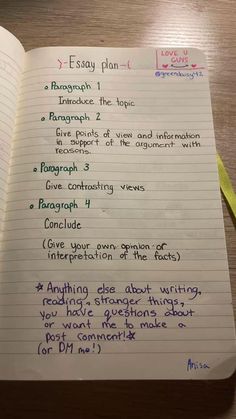 Essay plan
LOVE U
GUYS
@greendaisy42
Paragraph 1
Introduce the topic
Paragraph 2
Give points of view and information
in support of the argument with
reasons.
Paragraph 3
Give contrasting views
Paragraph 4
Conclude
(Give your own opinion or
interpretation of the facts)
Anything else about writing,
reading, stranger things,
you have questions about
or want me to make a
post comment!
(or DM me!)
Anisa